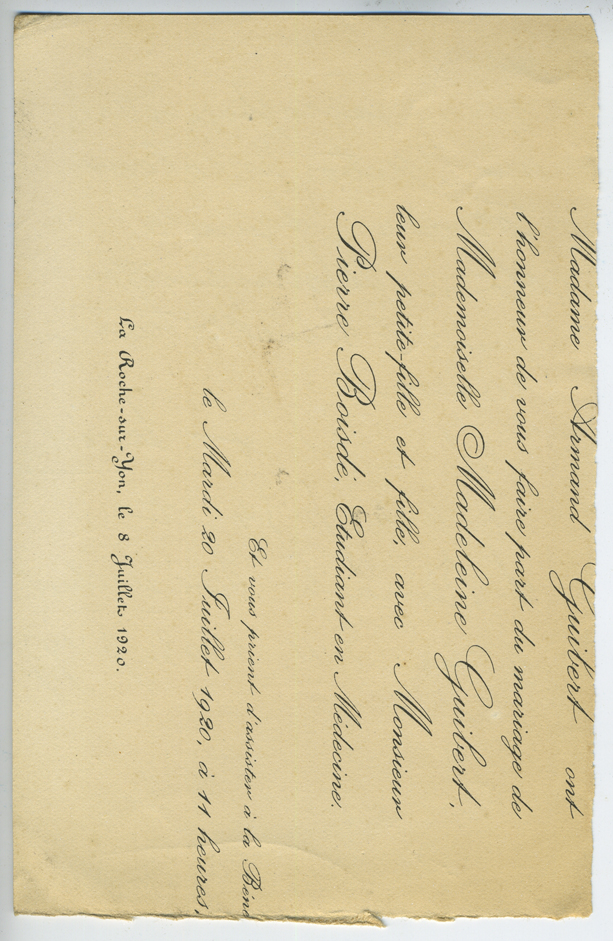 Madame Armand Guibert ont
l'honneur de vous faire part du mariage de
Mademoiselle Madeleine Guibert,
leur petite-fille et fille, avec Monsieur
Pierre Boisdé, Etudiant en Médecine.
Et vous prient d'assister à la Béné
le Mardi 20 Juillet 1920, à 11 heures,
La Roche-sur-Yon, le 8 Juillet 1920.